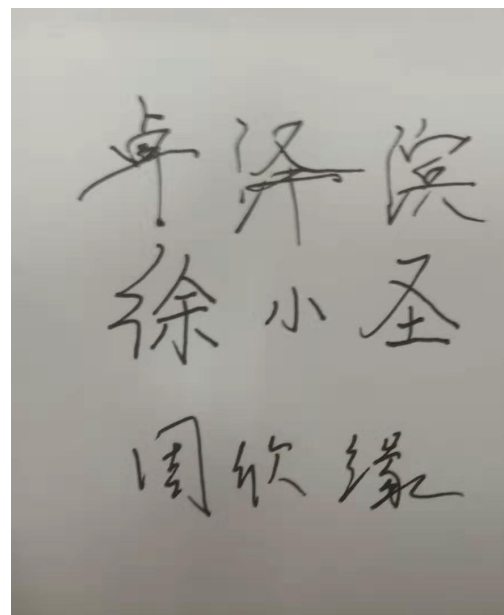 卓泽滨
徐小圣
周欣缘